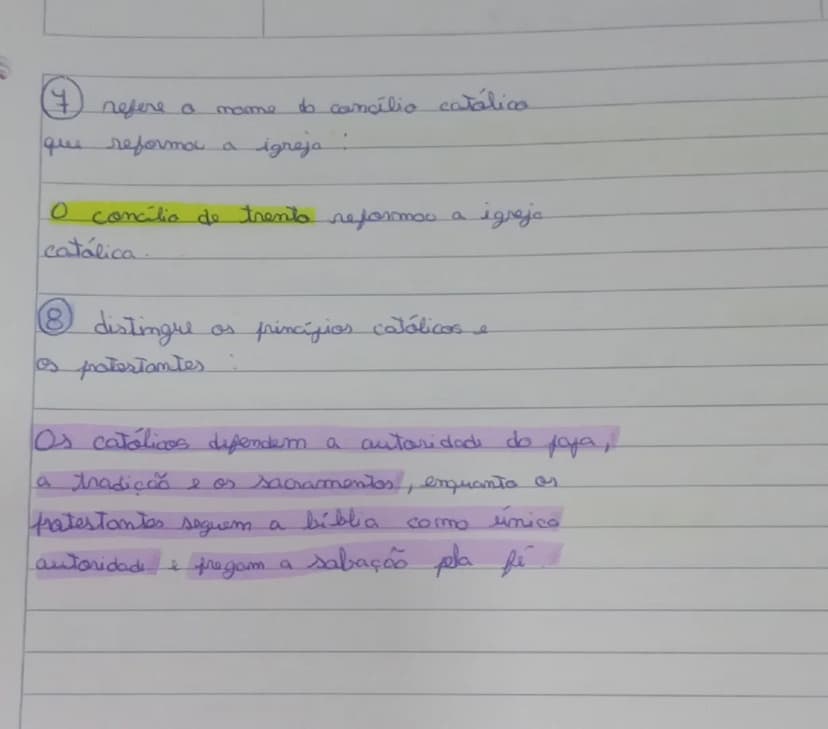 7 refere o nome do concílio católico
que reformou a igreja :
O concílio de trento reformou a igreja
católica.
8 distingue os princípios católicos e
os protestantes :
Os católicos defendem a autoridade do papa,
a tradição e os sacramentos, enquanto os
protestantes seguem a bíblia como única
autoridade e pregam a salvação pela fé